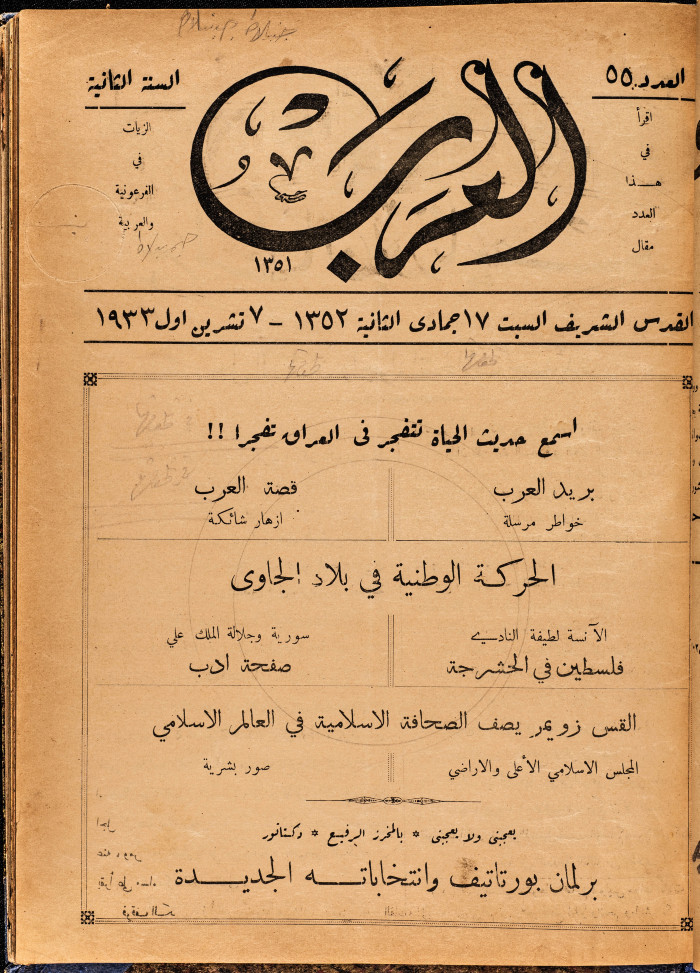 العدد ٥٥
السنة الثانية
العرب
١٣٥١
اقرأ
في
هـــذا
العدد
مقال
الزيات
في
الفرعونية
والعربية
القدس الشريف السبت ١٧ جمادى الثانية ١٣٥٢ – ٧ تشرين اول ١٩٣٣
اسمع حديث الحياة تتفجر فى العراق تفجرا !!
بريد العرب
خواطر مرسلة
قصة العرب
ازهار شائكة
الحركة الوطنية في بلاد الجاوى
الآنسة لطيفة النادي
فلسطين في الحشرجة
سورية وجلالة الملك علي
صفحة ادب
القس زويمر يصف الصحافة الاسلامية في العالم الاسلامي
المجلس الاسلامي الأعلى والاراضي
صور بشرية
يعجبنى ولا يعجبنى * بالمخرز الرفيع * دكستاتور
برلمان بورتاتيف وانتخاباتــه الجديــدة